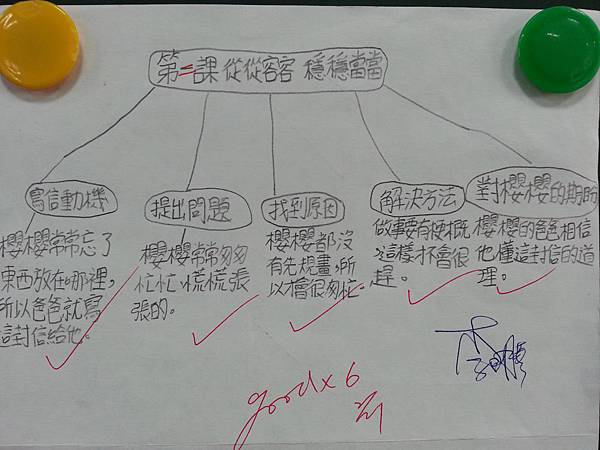 第二課 從從容容 穩穩當當
寫信動機
櫻櫻常常忘了
東西放在哪裡,
所以爸爸就寫
這封信給他。
提出問題
櫻櫻常常匆匆
忙忙、慌慌張
張的。
找到原因
櫻櫻都沒
有先規畫,所
以才會很匆忙。
解決方法
做事要有
這樣才不會很
趕。
對櫻櫻的期盼
櫻櫻的爸爸相信
他懂這封信的道
理。
goodx6